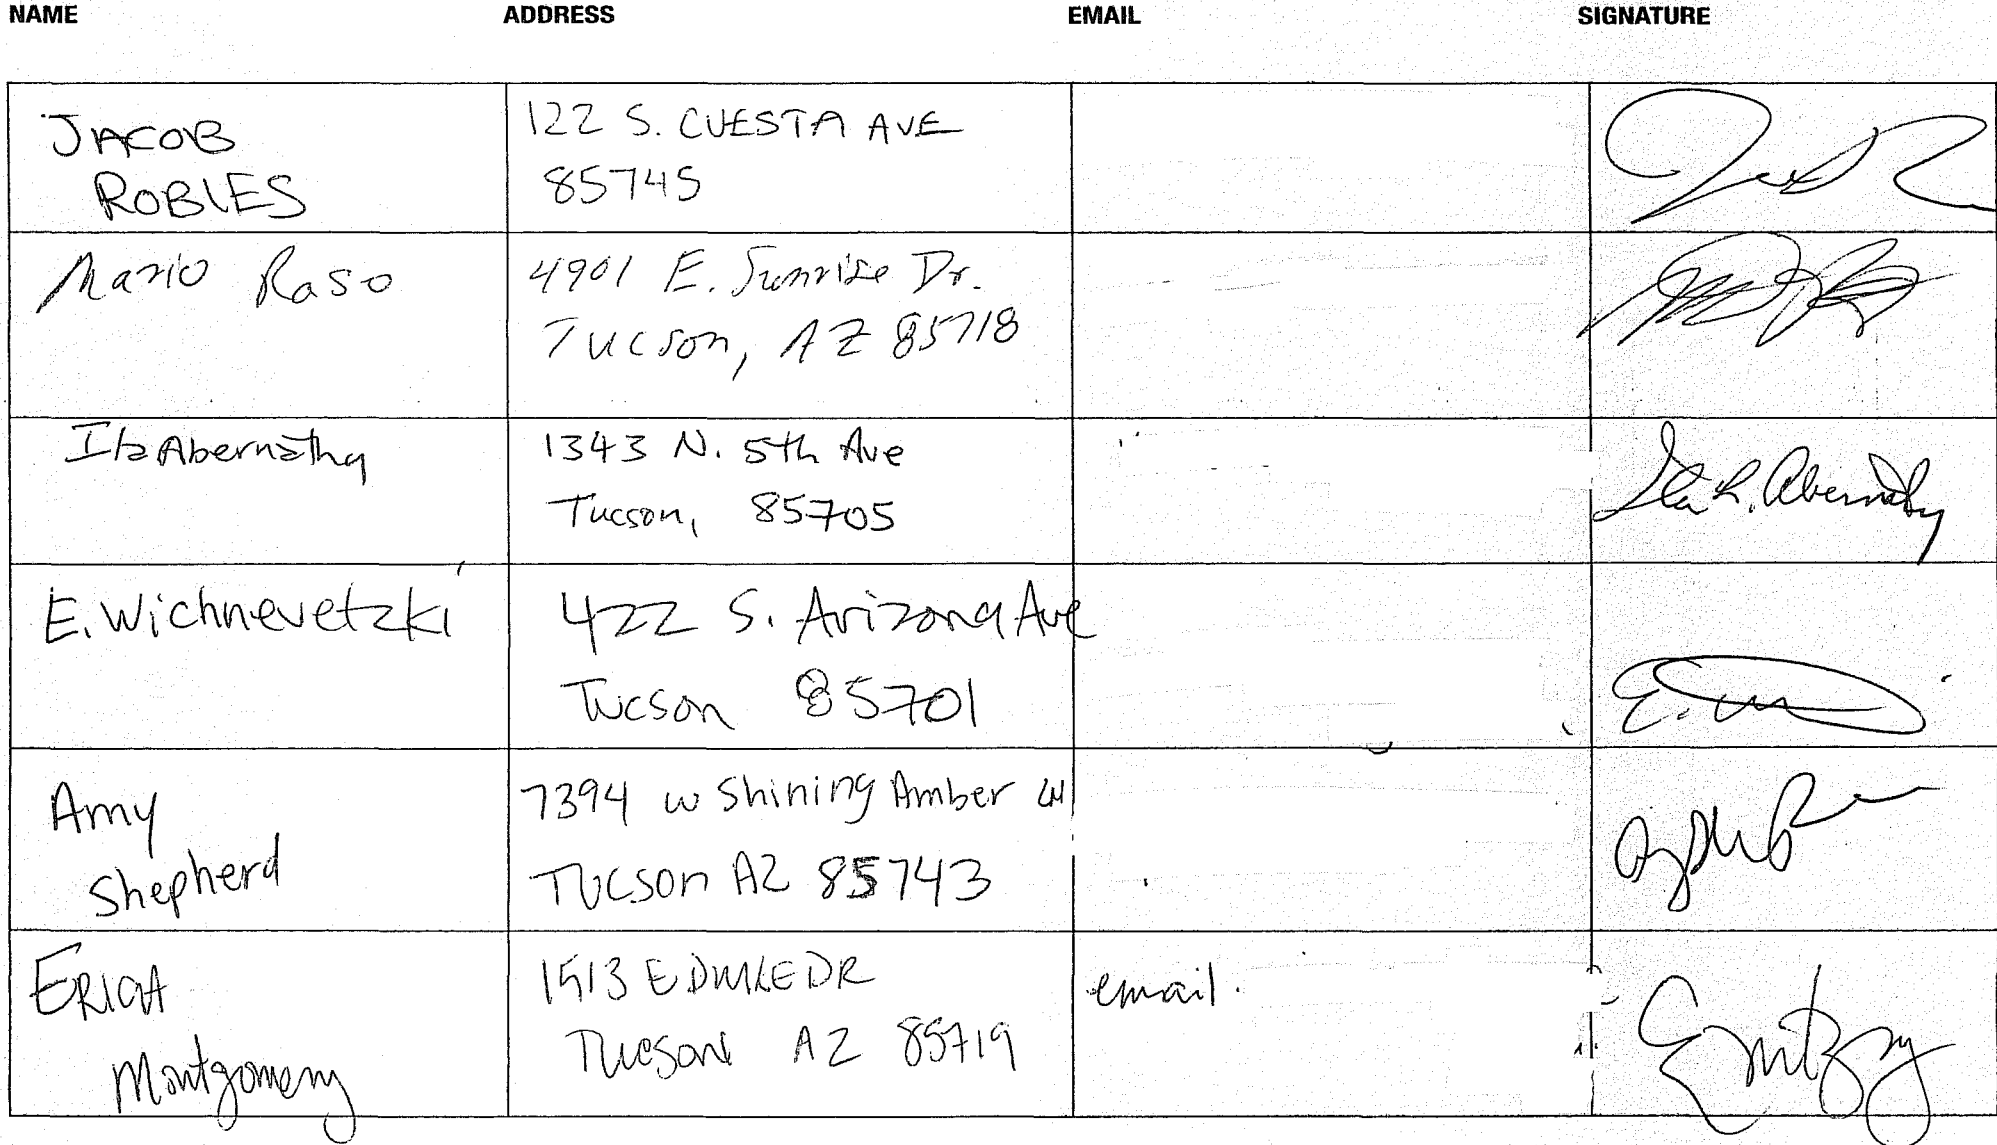 NAME ADDRESS EMAIL SIGNATURE
JACOB
ROBLES
122 S. CUESTA AVE
85745
Mario Raso
4901 E. Sunrise Dr.
Tucson, AZ 85718
Ila Abernathy
1343 N. 5th Ave
Tucson, 85705
Ila R. Abernathy
E. Wichnevetzki
422 S. Arizona Ave
Tucson 85701
E.
Amy
Shepherd
7394 W Shining Amber LN
Tucson AZ 85743
ERICA
Montgomery
1513 E
Tucson AZ 85719
email.